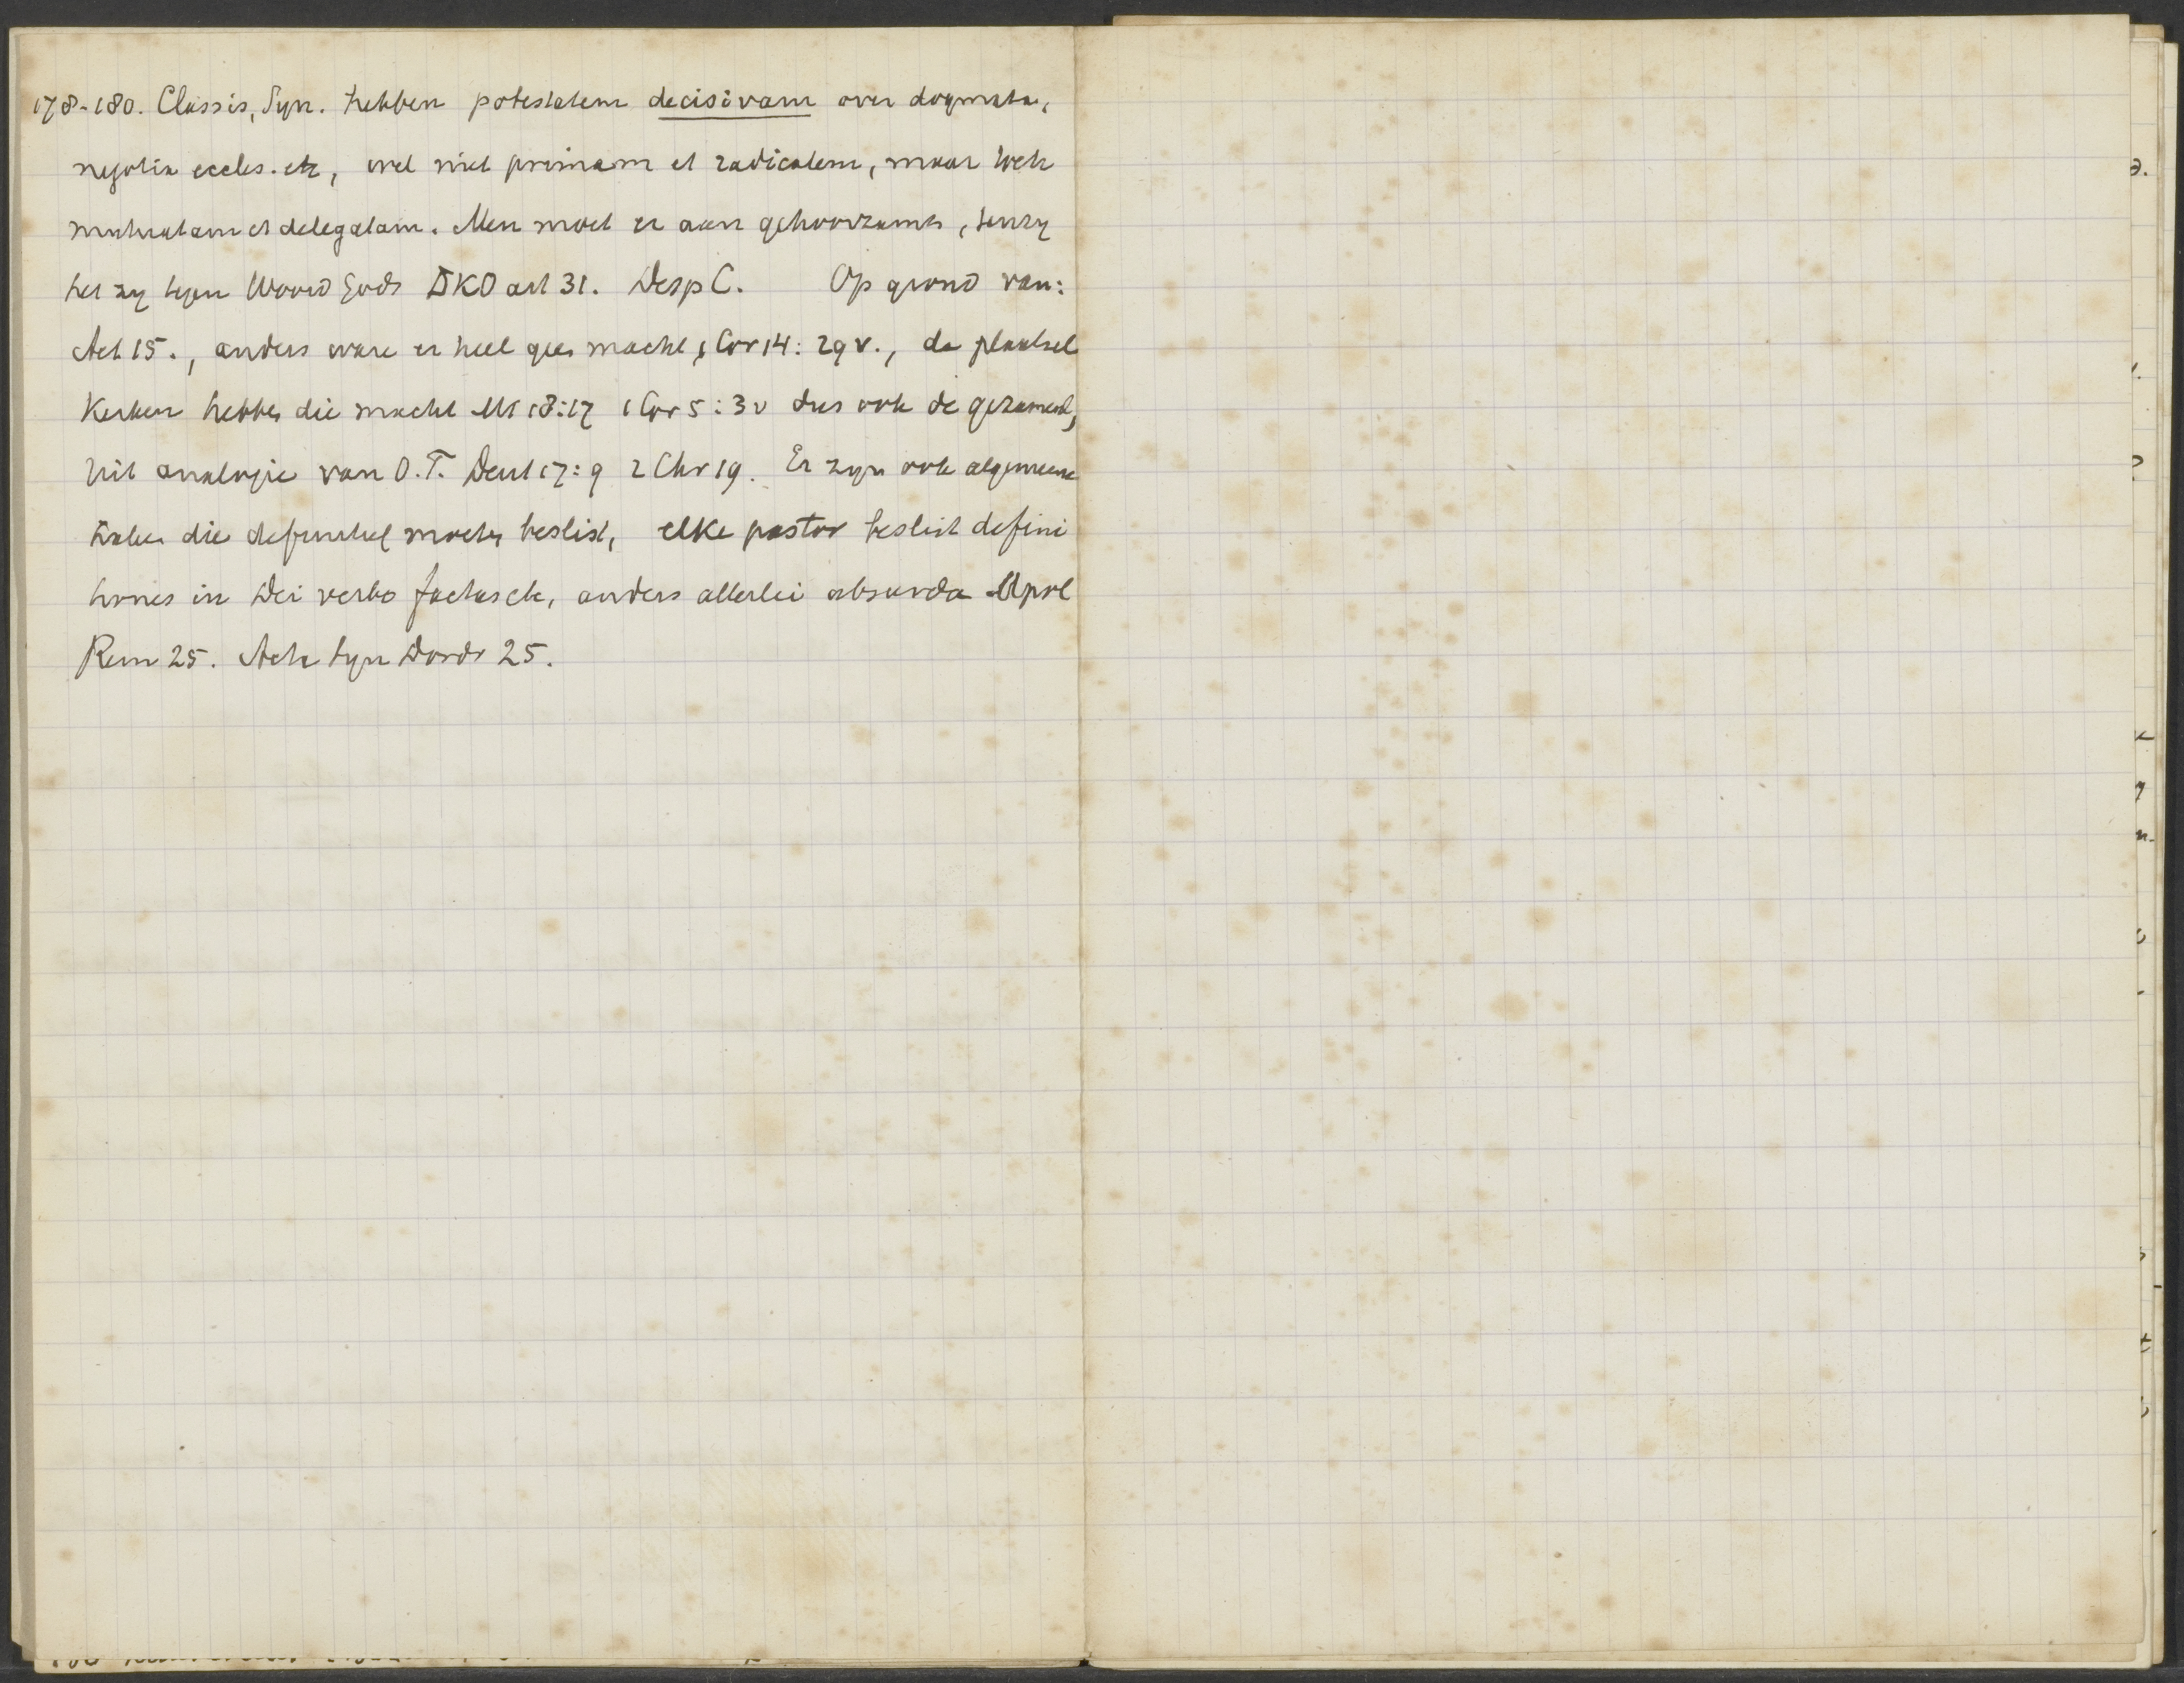 178-180. Classis, Syn. hebben potestatem decisivam over dogmata,
negotia eccles. etc, wel niet primam et radicalem, maar toch
mutuatam et delegatam. Men moet er aan gehoorzamen, tenzy
het zy tegen Woord Gods DKO art 31. Desp C. Op grond van:
Act 15., anders ware er heel geen macht, 1 Cor 14: 29 v., de plaatsel
Kerken hebben die macht Mt 18:17 1 Cor 5:3v dus ook de gezamenl,
uit analogie van O.T. Deut 17:9 2 Chr 19. Er zyn ook algemeene
zaken die definitief moeten beslist, elke pastor beslist defini
tiones in Dei verbo factas etc, anders allerlei absurda Apol
Rem 25. Acta Syn Dordr 25.